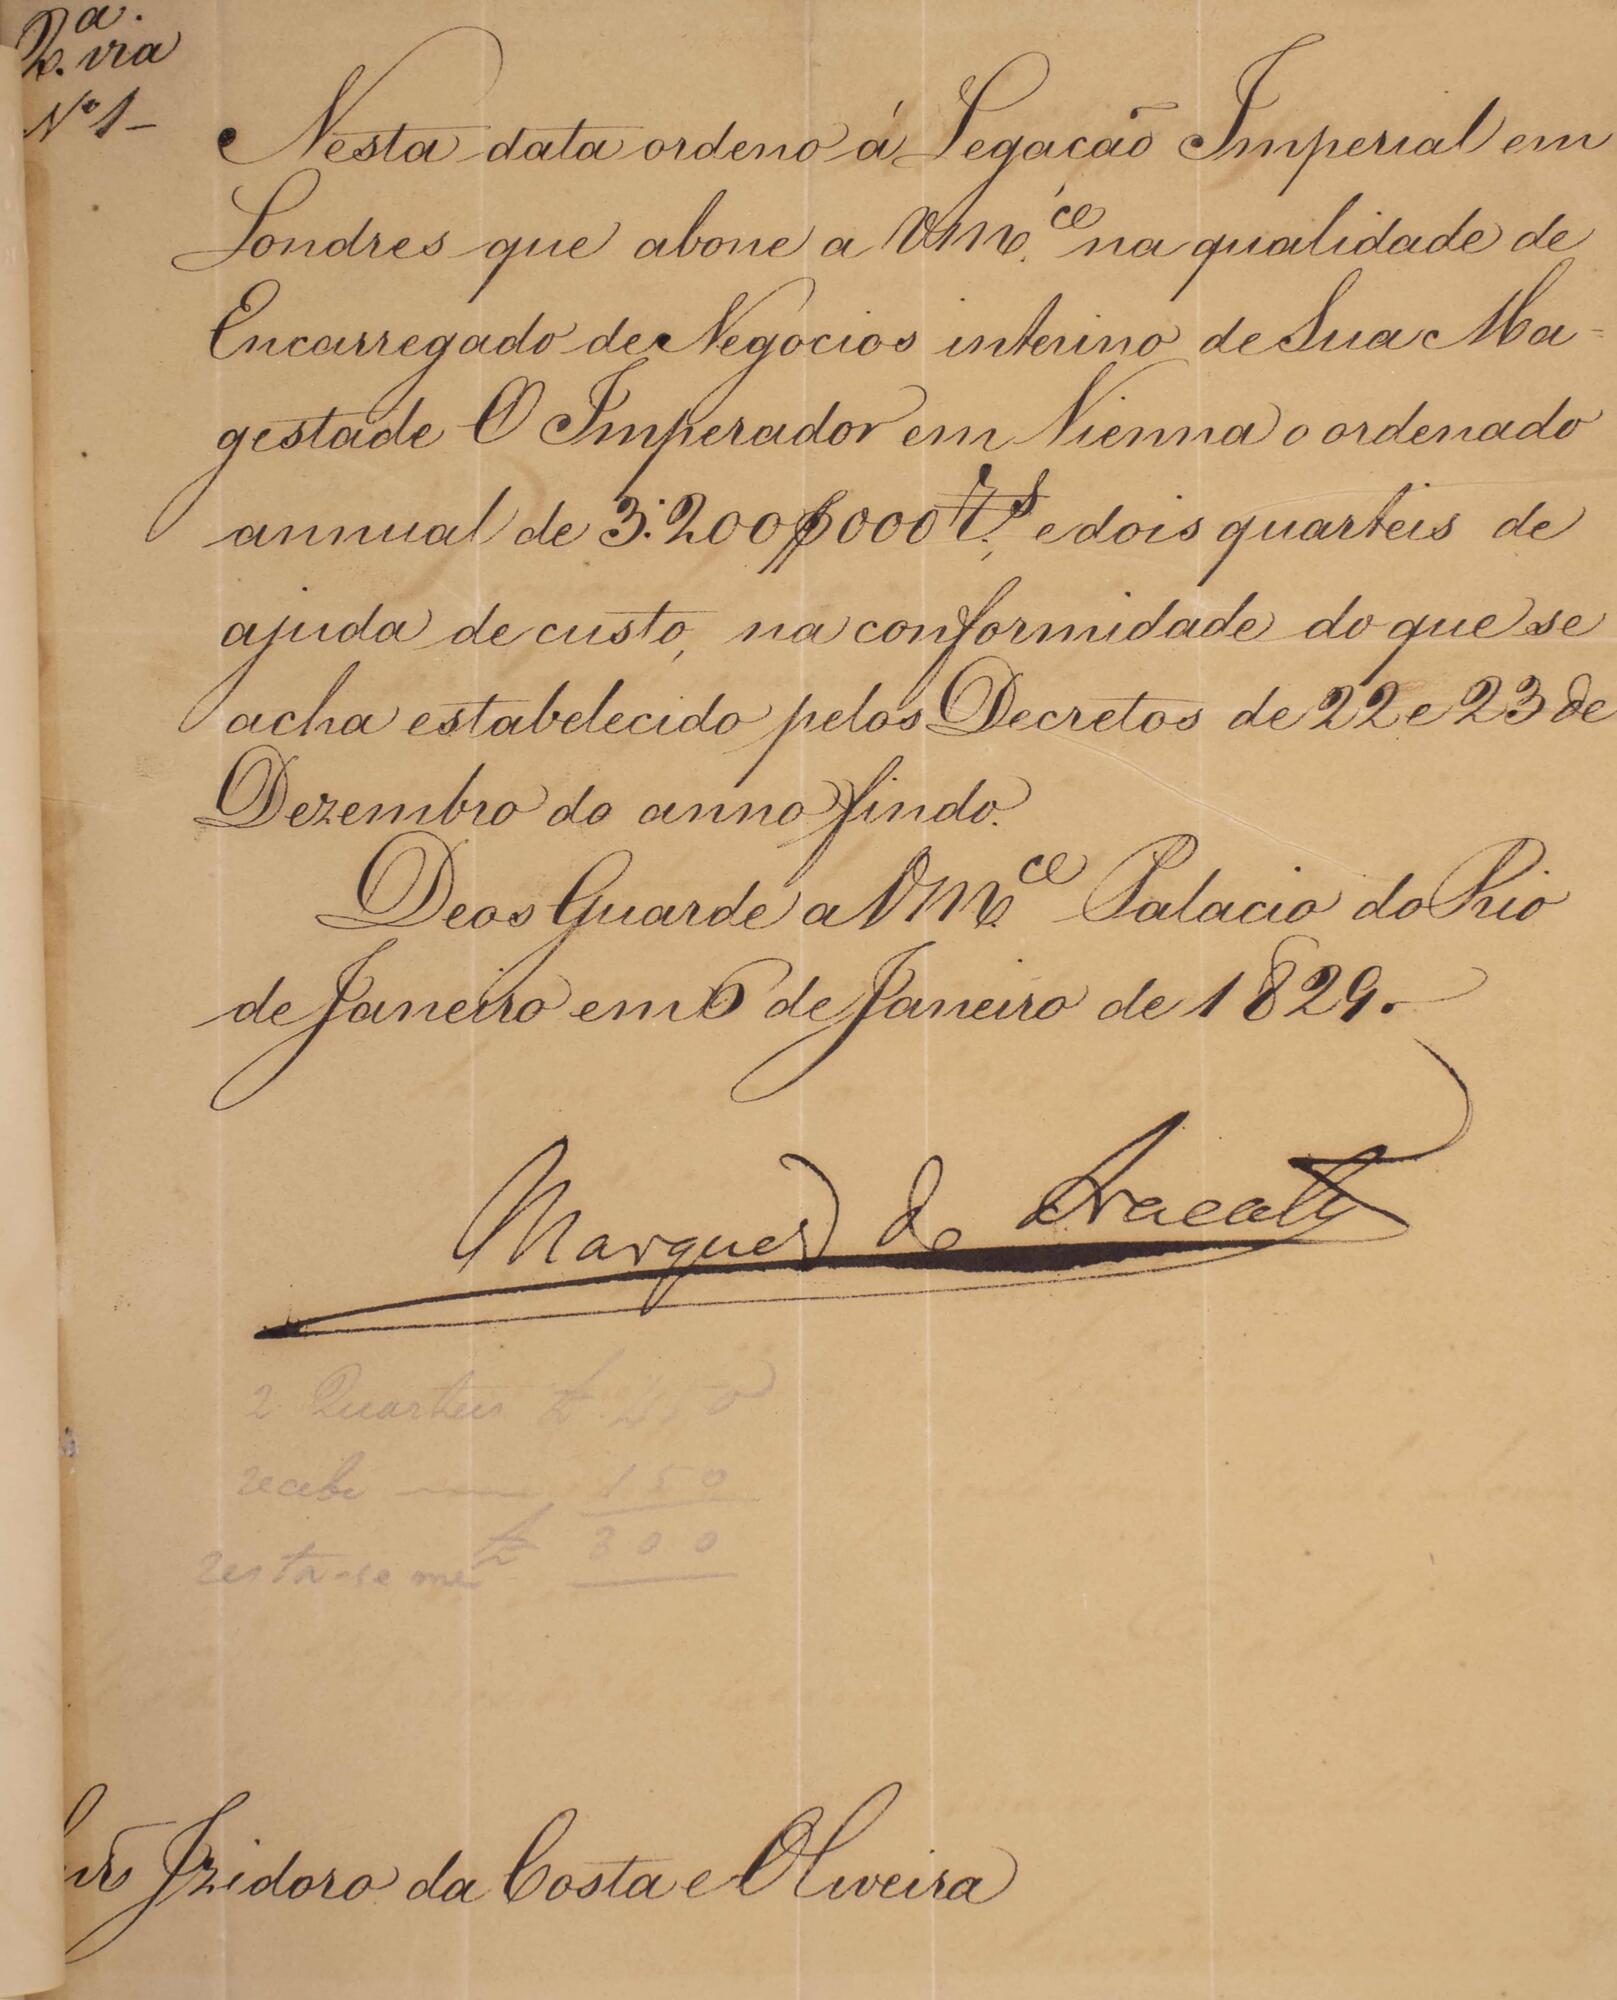 2.ª via
Nº 1 –
Nesta data ordeno á Legacão Imperial em
Londres que abone a VM.ce na qualidade de
Encarregado de Negocios interino de Sua Ma=
gestade O Imperador em Vienna o ordenado
annual de 3:200$000 r.s, e dois quarteis de
ajuda de custo, na conformidade do que se
acha estabelecido pelos Decretos de 22 e 23 de
Dezembro do anno findo.
Deos Guarde a VM.ce Palacio do Rio
de Janeiro em 6 de Janeiro de 1829.
Marquez de Aracaty
2 Quarteis £ 450
recebi — 150
resta-se me £ 300
Izidoro da Costa e Oliveira